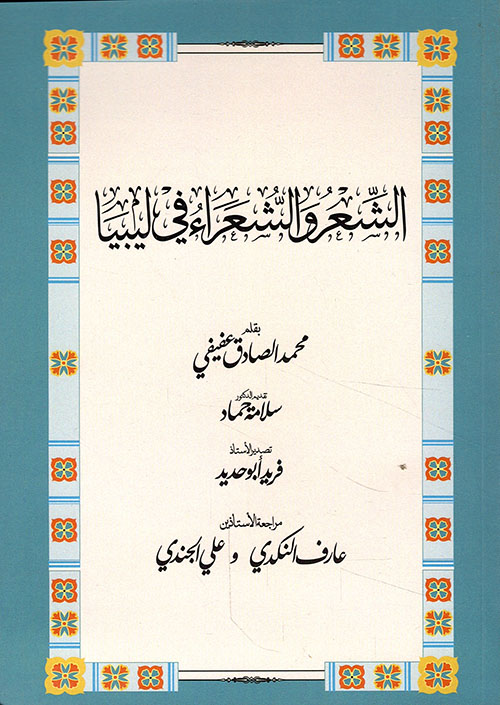 الشِّعْرُ وَالشُّعَرَاءُ فِي ليْبيَا
بقلم
محمد الصادق عفيفي
تقديم الدكتور
سلامة حماد
تصدير الأستاذ
فريد أبو حديد
مراجعة الأستاذين
عارف النكدي و علي الجندي